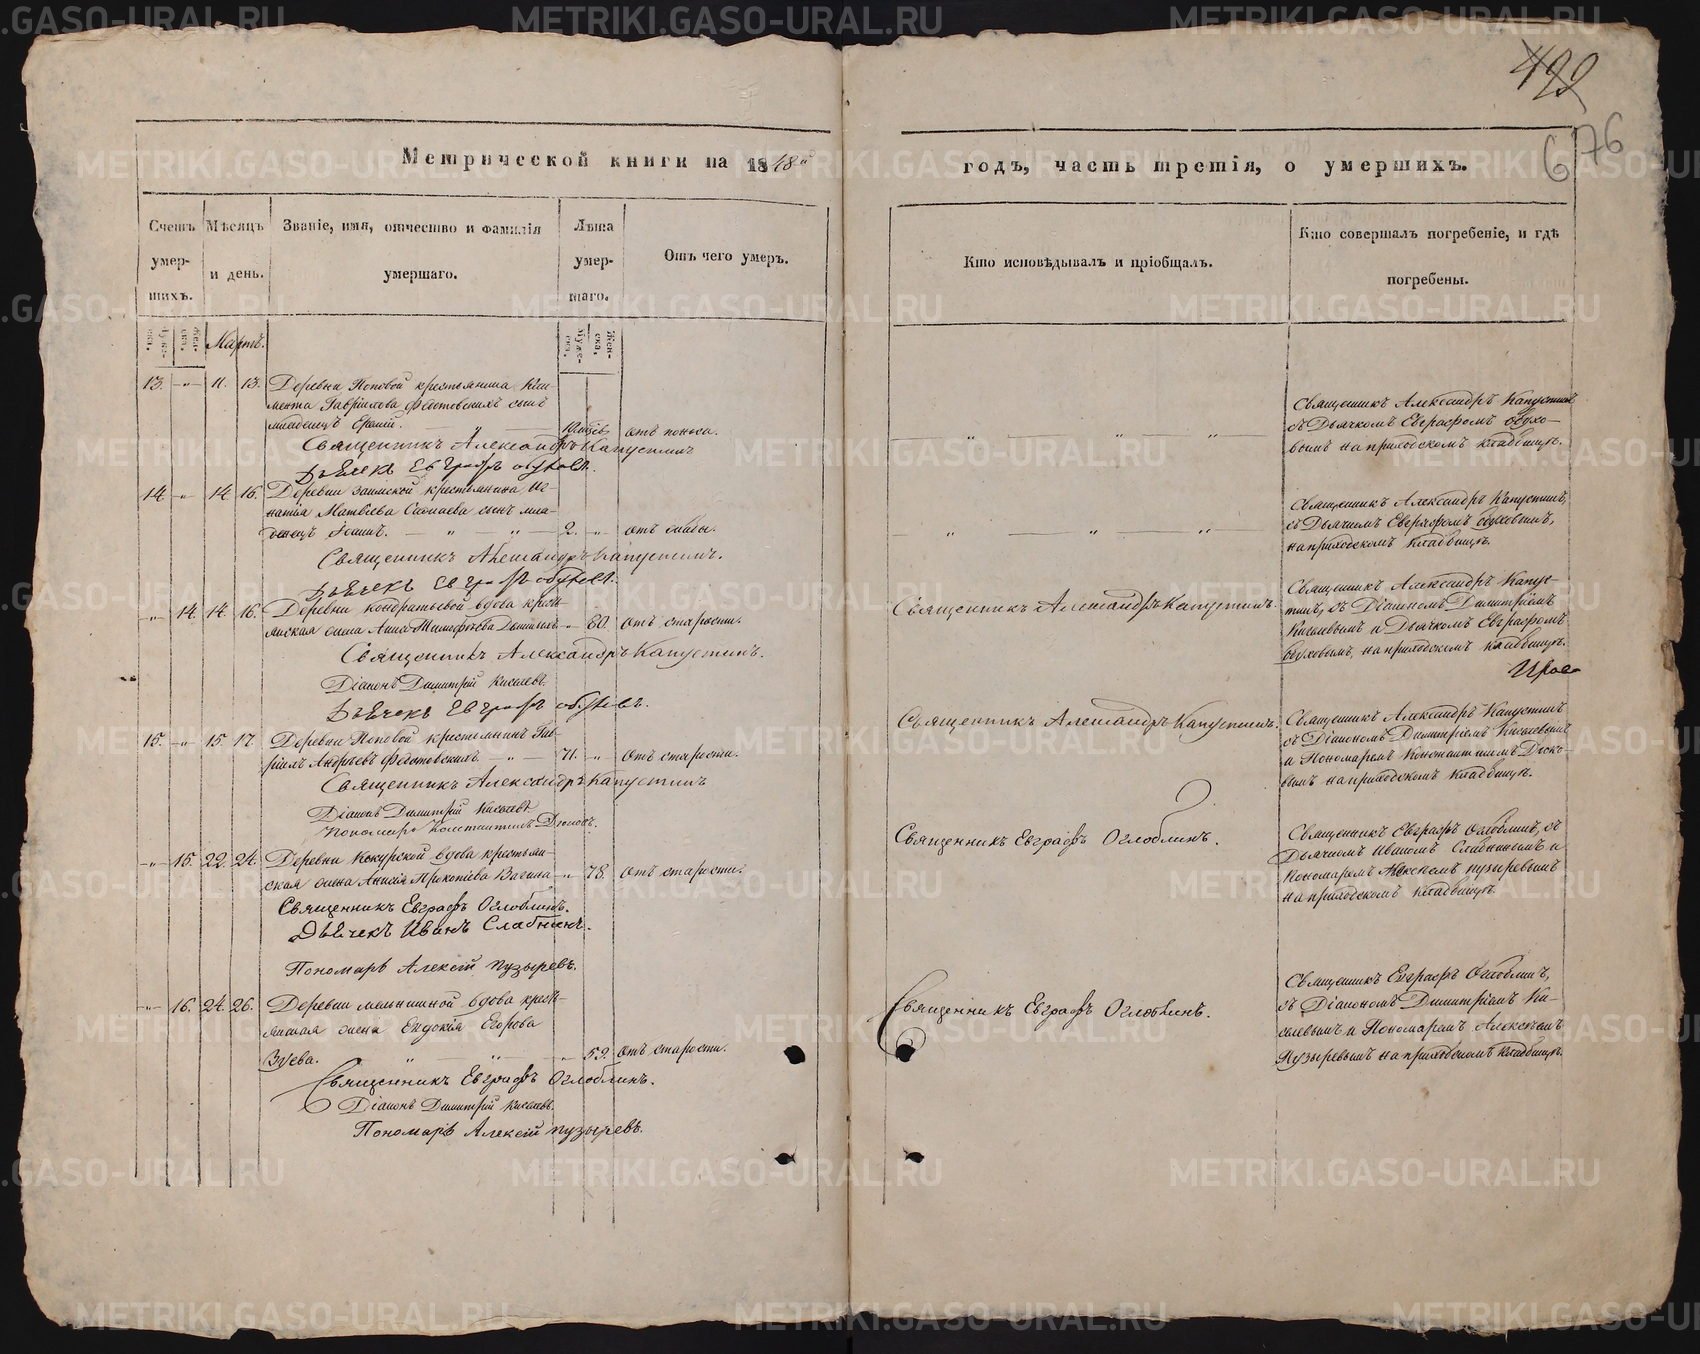 499
6 76
Метрической книги на 1848й
годъ, часть третія, о умершихъ.
Счетъ умер-шихъ.
Мѣсяцъ и день.
Званіе, имя, отчество и фамилія умершаго.
Лѣта умер-шаго.
Отъ чего умеръ.
Кто исповѣдывалъ и пріобщалъ.
Кто совершалъ погребеніе, и гдѣ погребены.
Мартъ.
13. -"- 11. 13. Деревни Поповой крестьянина Кли-
мента Гаврилова Федотовскихъ сынъ
младенецъ
отъ поноса.
Священникъ Александръ Капустинъ
Дьячекъ Евграфъ Обуховъ.
Священникъ Александръ Капустинъ
съ Дьячкомъ Евграфомъ Обухо-
вымъ на приходскомъ кладбищѣ.
14. -"- 14. 16. Деревни Заимской крестьянина Иг-
натія Матвѣева сынъ мла-
денецъ Іоаннъ. 2. " отъ оспы.
Священникъ Александръ Капустинъ.
Дьячекъ Евграфъ Обуховъ.
Священникъ Александръ Капустинъ,
съ Дьячкомъ Евграфомъ Обуховымъ,
на приходскомъ кладбищѣ.
-"- 14. 14. 16. Деревни Кондратьевой вдова кресть-
янская жена Анна Тимофѣева " 80. отъ старости.
Священникъ Александръ Капустинъ.
Діаконъ Димитрій Киселевъ.
Дьячекъ Евграфъ Обуховъ.
Священникъ Александръ Капустинъ.
Священникъ Александръ Капус-
тинъ, съ Діакономъ Димитріемъ
Киселевымъ и Дьячкомъ Евграфомъ
Обуховымъ, на приходскомъ кладбищѣ.
15. -"- 15. 17. Деревни Поповой крестьянинъ Гав-
ріилъ Андреевъ Федотовскихъ. 71. " отъ старости.
Священникъ Александръ Капустинъ
Діаконъ Димитрій Киселевъ
Пономарь Константинъ
Священникъ Александръ Капустинъ.
Священникъ Александръ Капустинъ
съ Діакономъ Димитріемъ Киселевымъ
и Пономаремъ Константиномъ
вымъ на приходскомъ кладбищѣ.
-"- 15. 22. 24. Деревни Кокурской вдова крестьян-
ская жена Анисія Прокопіева Вагина " 78. отъ старости.
Священникъ Евграфъ Оглоблинъ.
Дьячекъ Иванъ Слабнинъ.
Пономарь Алексій Пузыревъ.
Священникъ Евграфъ Оглоблинъ.
Священникъ Евграфъ Оглоблинъ, съ
Дьячкомъ Иваномъ Слабнинымъ и
Пономаремъ Алексѣемъ Пузыревымъ
на приходскомъ кладбищѣ.
-"- 16. 24. 26. Деревни Мельнишной вдова кресть-
янская жена Евдокія Егорова
Зуева. " 59. отъ старости.
Священникъ Евграфъ Оглоблинъ.
Діаконъ Димитрій Киселевъ.
Пономарь Алексій Пузыревъ.
Священникъ Евграфъ Оглоблинъ.
Священникъ Евграфъ Оглоблинъ,
съ Діакономъ Димитріемъ Ки-
селевымъ и Пономаремъ Алексѣемъ
Пузыревымъ на приходскомъ кладбищѣ.
METRIKI.GASO-URAL.RU